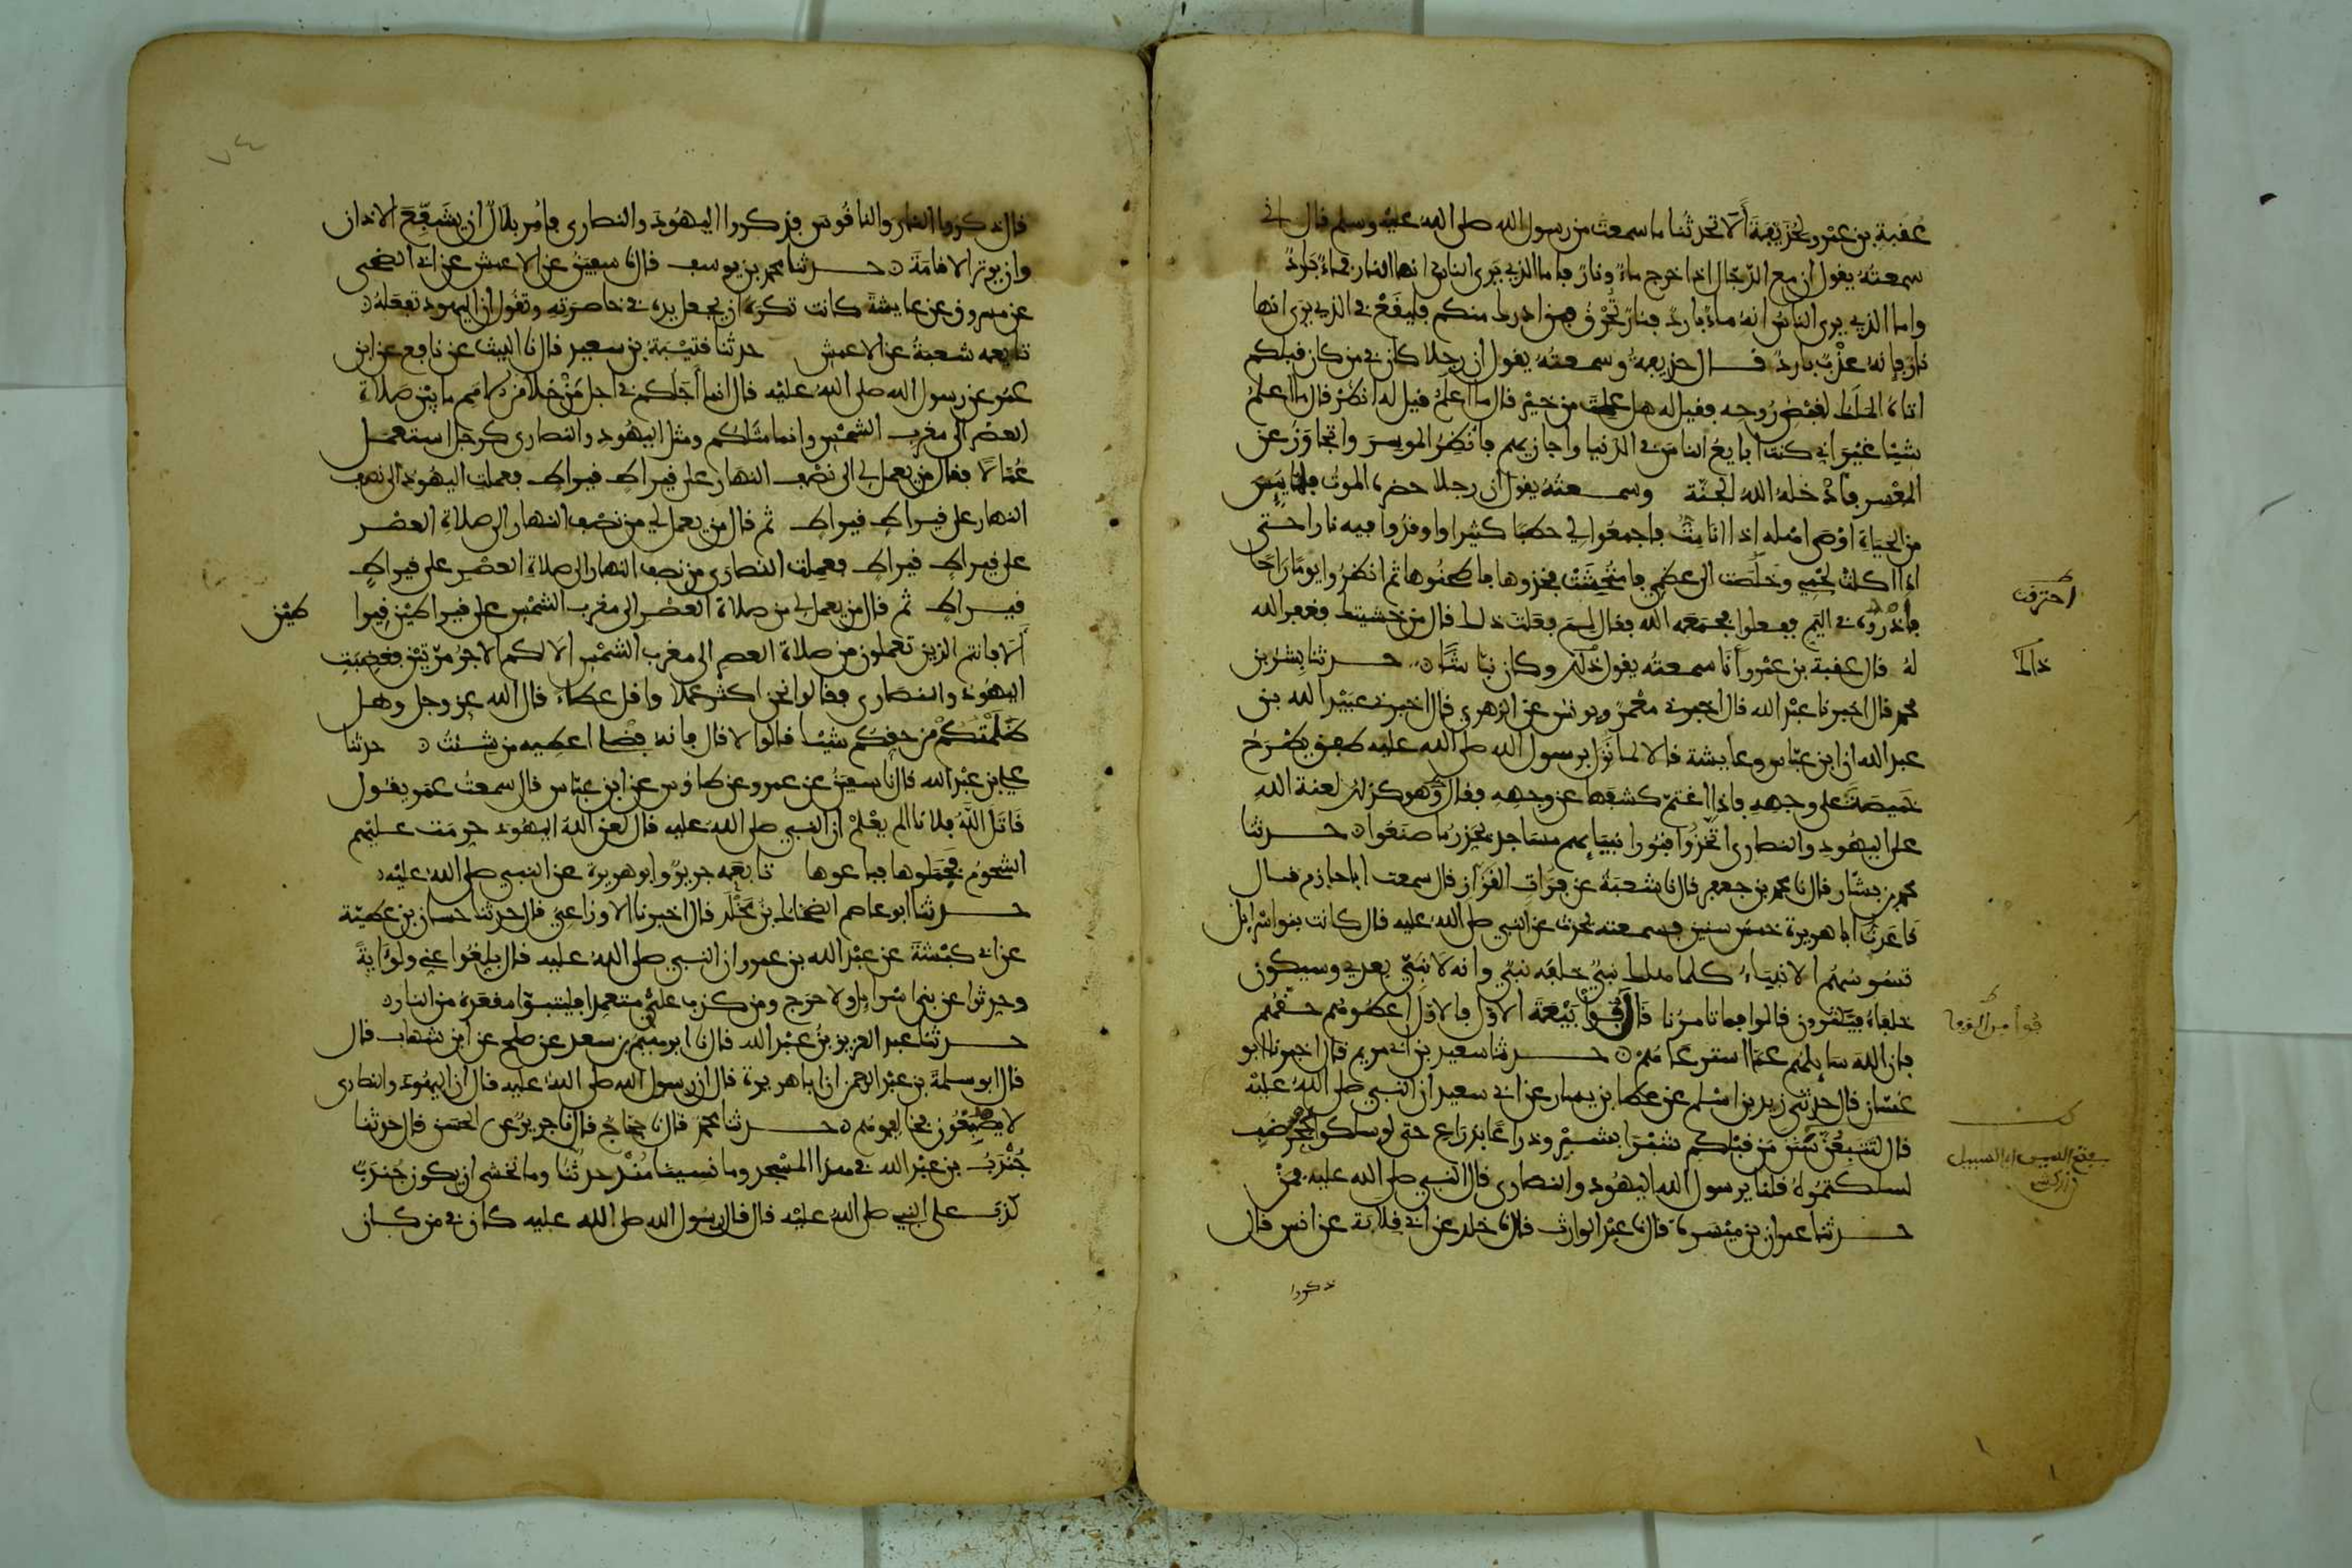 عُقبة بن عمرو لحُذيفة ألا تحدثنا ما سمعت من رسول الله صلى الله عليه وسلم قال اني
سمعته يقول ان مع الدجال اذا خرج ماءً ونارًا فاما الذي يرى الناس انها النار فماء بارد
واما الذي يرى الناس انه ماء بارد فنار تحرق فمن ادرك منكم فليقع في الذي يرى انها
نار فإنه عذب بارد قال حذيفة وسمعته يقول ان رجلا كان في من كان قبلكم
اتاه الملك ليقبض روحه فقيل له هل علمت من خير قال ما اعلم قيل له انظر قال ما اعلم
شيئا غير اني كنت ابايع الناس في الدنيا واجازيهم فأنظر الموسر واتجاوز عن
المعسر فأدخله الله الجنة وسمعته يقول ان رجلا حضره الموت فلما يئس
من الحياة اوصى اهله اذا انا مت فاجمعوا لي حطبا كثيرا واوقدوا فيه نارا حتى
اذا اكلت لحمي وخلصت الى عظمي فامتحشت فخذوها فاطحنوها ثم انظروا يوما راحا
فأذروه في اليم ففعلوا فجمعه الله فقال لم فعلت ذلك قال من خشيتك فغفر الله
له قال عقبة بن عمرو وأنا سمعته يقول ذلك وكان نباشا حدثنا بشر بن
محمد قال اخبرنا عبد الله قال اخبرني معمر ويونس عن الزهري قال اخبرني عبيد الله بن
عبد الله ان ابن عباس وعائشة قالا لما نزل برسول الله صلى الله عليه طفق يطرح
خميصة على وجهه فإذا اغتم كشفها عن وجهه فقال وهو كذلك لعنة الله
على اليهود والنصارى اتخذوا قبور انبيائهم مساجد يحذر ما صنعوا حدثنا
محمد بن بشار قال نا محمد بن جعفر قال نا شعبة عن فرات القزاز قال سمعت ابا حازم قال
قاعدت ابا هريرة خمس سنين فسمعته يحدث عن النبي صلى الله عليه قال كانت بنو اسرائيل
تسوسهم الانبياء كلما هلك نبي خلفه نبي وانه لا نبي بعدي وسيكون
خلفاء فيكثرون قالوا فما تامرنا قال فوا بيعة الاول فالاول اعطوهم حقهم
فإن الله سائلهم عما استرعاهم حدثنا سعيد بن ابي مريم قال اخبرنا ابو
غسان قال حدثني زيد بن اسلم عن عطا بن يسار عن ابي سعيد ان النبي صلى الله عليه
قال لتتبعن سنن من قبلكم شبرا بشبر وذراعا بذراع حتى لو سلكوا جحر ضب
لسلكتموه قلنا يرسول الله اليهود والنصارى قال النبي صلى الله عليه فمن
حدثنا عمران بن ميسرة قال نا عبد الوارث قال نا خلد عن ابي قلابة عن انس قال
ذكروا
احترقت
ذاك
قال ذكروا النار والناقوس فذكروا اليهود والنصارى فأمر بلال ان يشفع الاذان
وان يوتر الاقامة حدثنا محمد بن يوسف قال نا سفين عن الاعمش عن ابي الضحى
عن مسروق عن عايشة كانت تكره ان يجعل يده في خاصرته وتقول ان اليهود تفعله
تابعه شعبة عن الاعمش حدثنا قتيبة بن سعيد قال نا الليث عن نافع عن ابن
عمر عن رسول الله صلى الله عليه قال انما اجلكم في اجل من خلا من الامم ما بين صلاة
العصر الى مغرب الشمس وانما مثلكم ومثل اليهود والنصارى كرجل استعمل
عمالا فقال من يعمل لي الى نصف النهار على قيراط قيراط فعملت اليهود الى نصف
النهار على قيراط قيراط ثم قال من يعمل لي من نصف النهار الى صلاة العصر
على قيراط قيراط فعملت النصارى من نصف النهار الى صلاة العصر على قيراط
قيراط ثم قال من يعمل لي من صلاة العصر الى مغرب الشمس على قيراطين قيرا طين
ألا فانتم الذين تعملون من صلاة العصر الى مغرب الشمس الا لكم الاجر مرتين فغضبت
اليهود والنصارى فقالوا نحن اكثر عملا واقل عطاء قال الله عز وجل وهل
ظلمتكم من حقكم شيئا قالوا لا قال فانه فضلي اعطيه من شئت حدثنا
علي بن عبد الله قال نا سفين عن عمرو عن طاوس عن ابن عباس قال سمعت عمر يقول
قاتل الله فلانا الم يعلم ان النبي صلى الله عليه قال لعن الله اليهود حرمت عليهم
الشحوم فجملوها فباعوها تابعه جرير وابو هريرة عن النبي صلى الله عليه
حدثنا ابو عاصم الضحاك بن مخلد قال اخبرنا الاوزاعي قال حدثنا حسان بن عطية
عن ابي كبشة عن عبد الله بن عمرو ان النبي صلى الله عليه قال بلغوا عني ولو اية
وحدثوا عن بني اسرائيل ولا حرج ومن كذب علي متعمدا فليتبوا مقعده من النار
حدثنا عبد العزيز بن عبد الله قال نا ابرهيم بن سعد عن صلح عن ابن شهاب قال
قال ابو سلمة بن عبد الرحمن ان ابا هريرة قال ان رسول الله صلى الله عليه قال ان اليهود والنصارى
لا يصبغون فخالفوهم حدثنا محمد قال نا حجاج قال نا جرير عن الحسن قال حدثنا
جندب بن عبد الله في هذا المسجد وما نسينا منذ حدثنا وما نخشى ان يكون جندب
كذب على النبي صلى الله عليه قال قال رسول الله صلى الله عليه كان في من كان